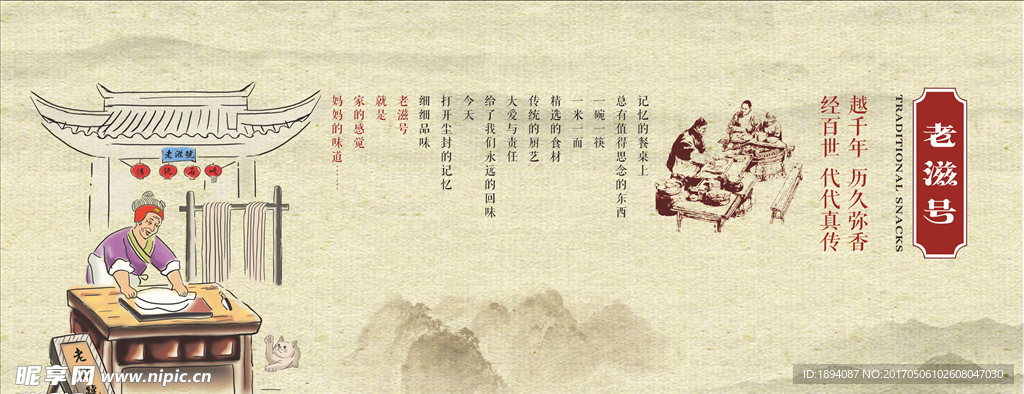 老滋号
TRADITIONAL SNACKS
越千年 历久弥香
经百世 代代真传
记忆的餐桌上
总有值得思念的东西
一碗一筷
一米一面
精选的食材
传统的厨艺
大爱与责任
给了我们永远的回味
今天
打开尘封的记忆
细细品味
老滋号
就是
家的感觉
妈妈的味道……
老滋號
传
统
老
昵享网 www.nipic.cn
ID:1894087 NO:20170506102608047030